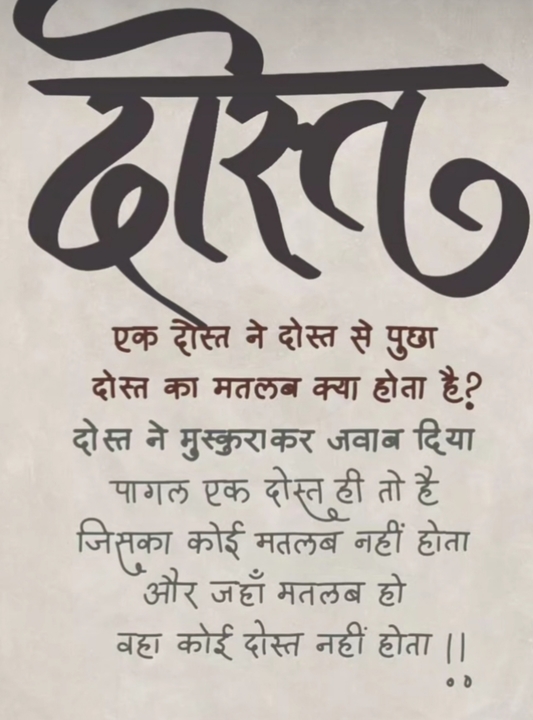 दोस्त
एक दोस्त ने दोस्त से पुछा
दोस्त का मतलब क्या होता है?
दोस्त ने मुस्कुराकर जवाब दिया
पागल एक दोस्त ही तो है
जिसका कोई मतलब नहीं होता
और जहाँ मतलब हो
वहा कोई दोस्त नहीं होता !!